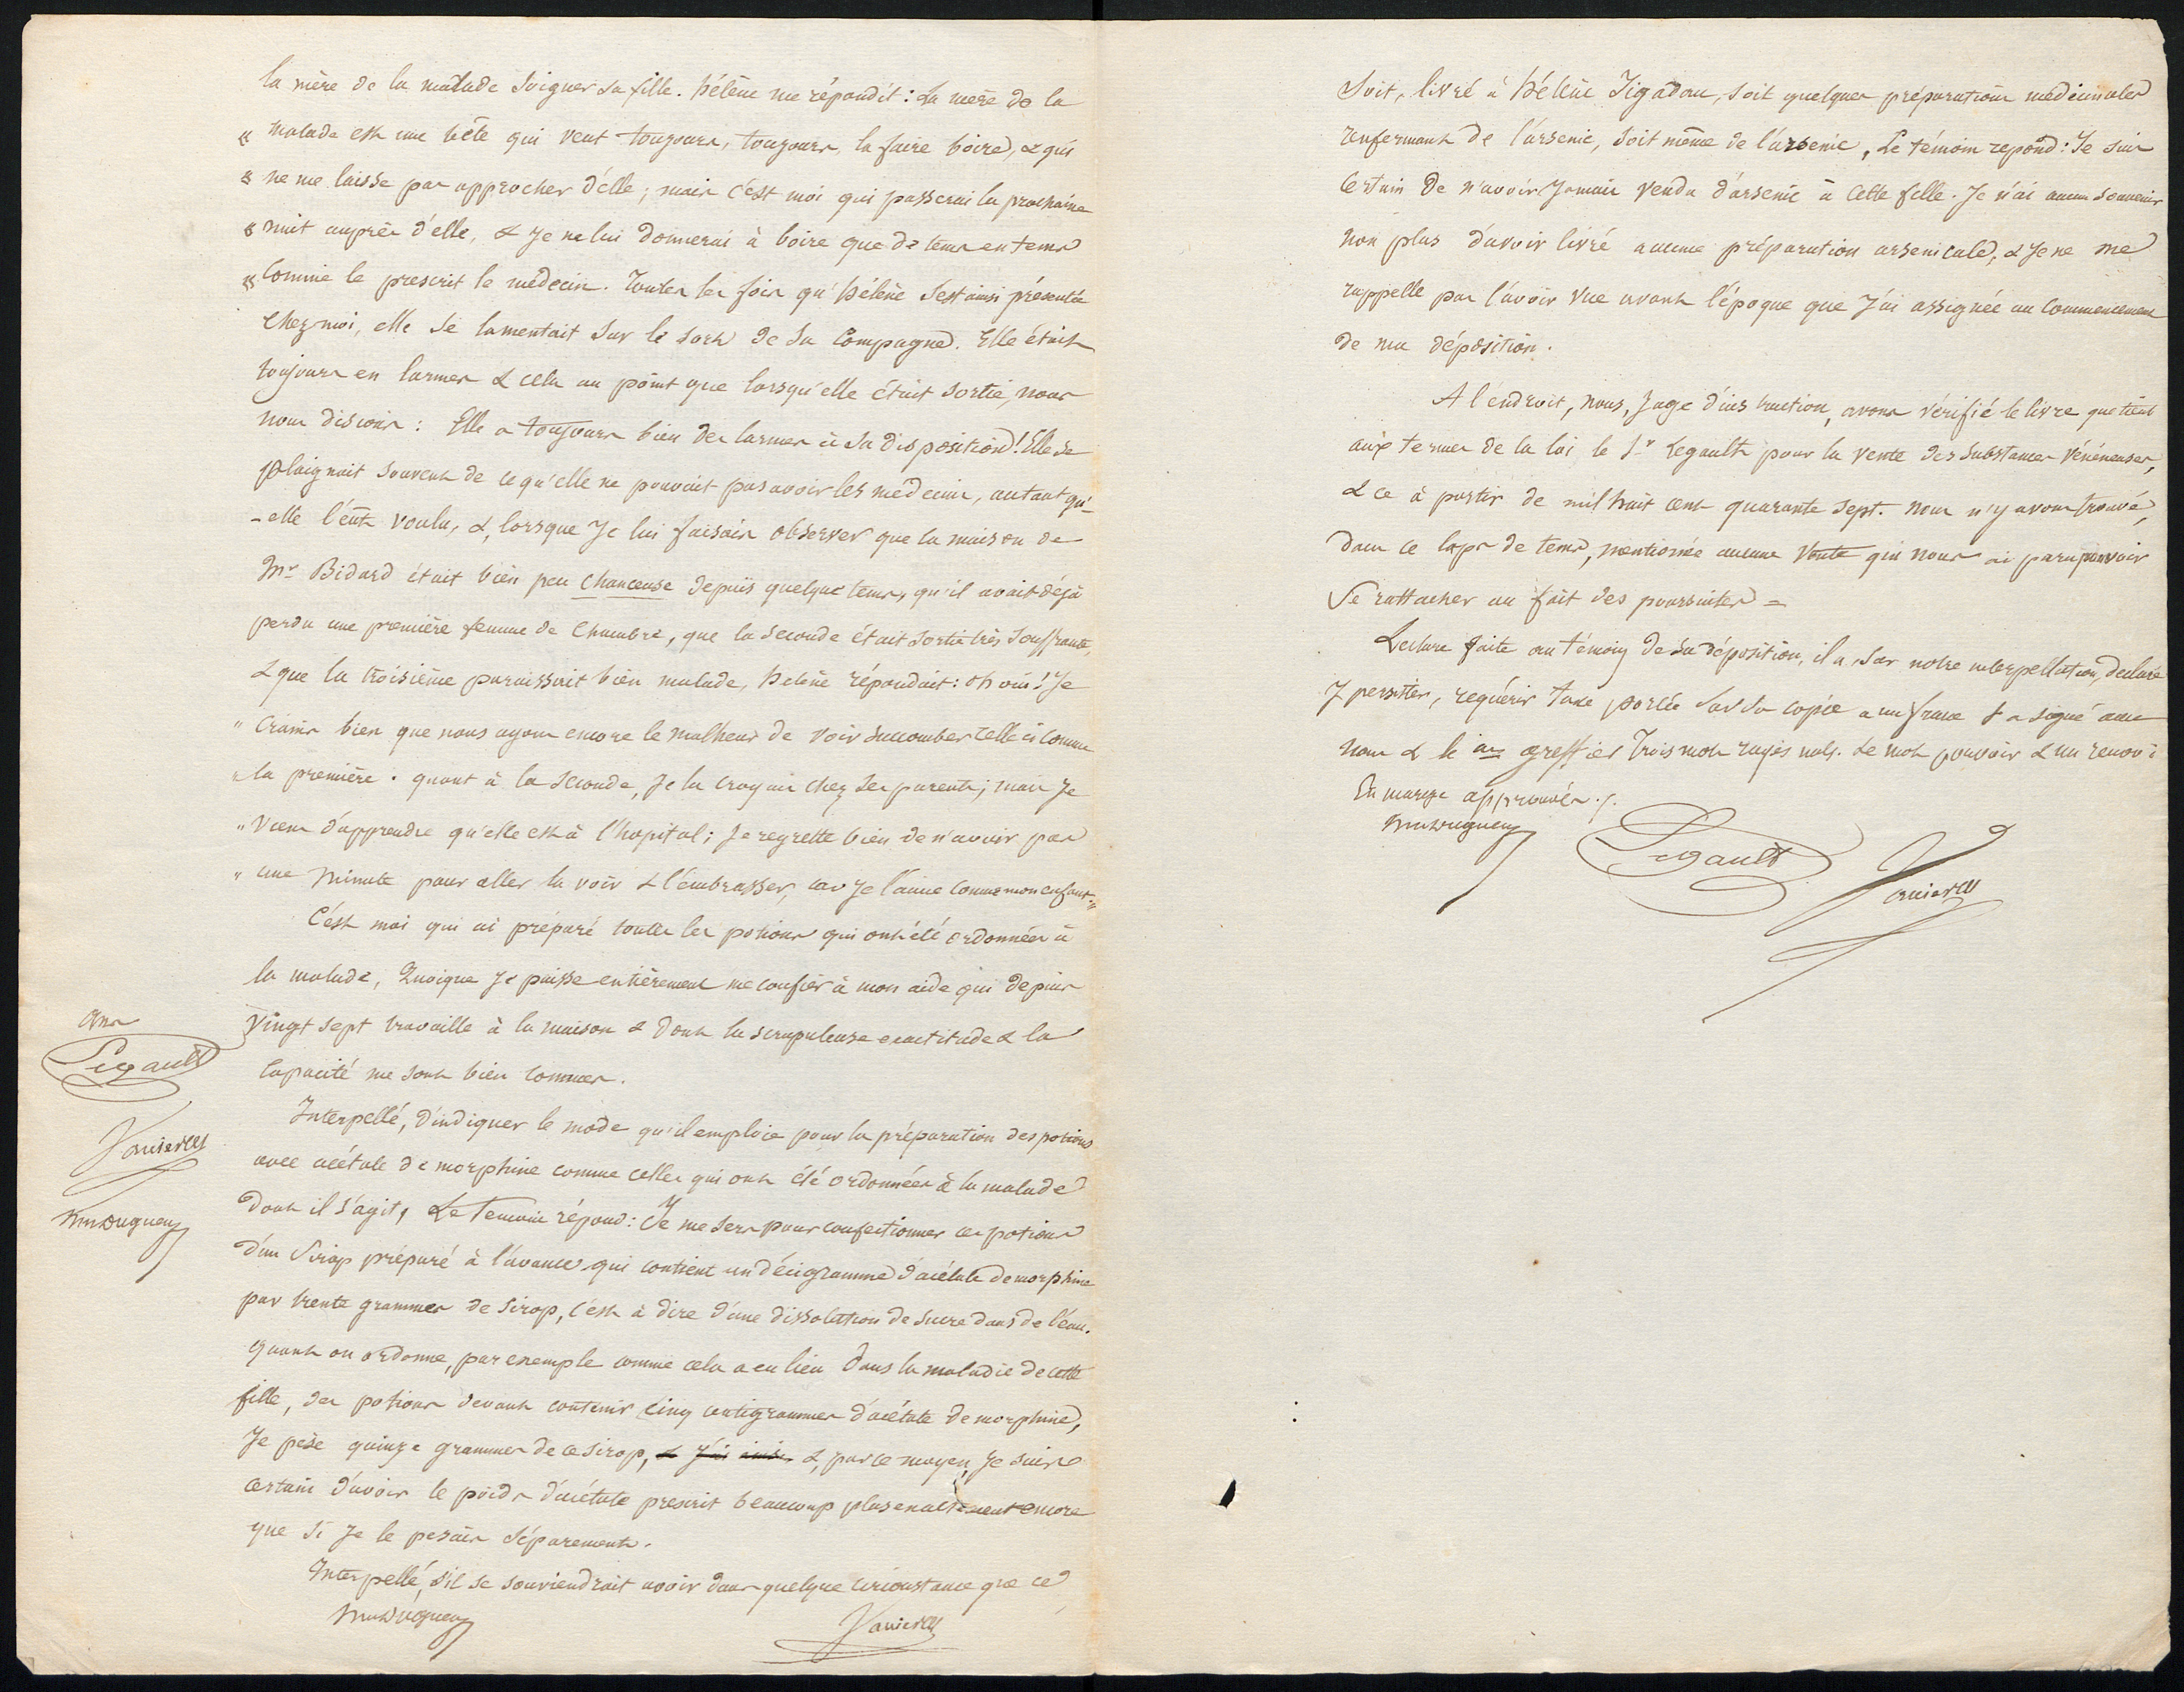 la mère de la malade soigner sa fille. Hélène me répondit : La mère de la
« malade est une bête qui veut toujours, toujours la faire boire, & qui
« ne me laisse pas approcher d'elle ; mais c'est moi qui passerai la prochaine
« nuit auprès d'elle, & je ne lui donnerai à boire que de tems en tems
« comme le prescrit le médecin. Toutes les fois qu'Hélène s'est ainsi présentée
chez moi, elle se lamentait sur le sort de sa compagne. Elle était
toujours en larmes & cela au point que lorsqu'elle était sortie, nous
nous disions : Elle a toujours bien des larmes à sa disposition ! Elle se
plaignait souvent de ce qu'elle ne pouvait pas avoir les médecins, autant qu'-
-elle l'eût voulu, &, lorsque je lui faisais observer que la maison de
Mr Bidard était bien peu chanceuse depuis quelque tems, qu'il avait déjà
perdu une première femme de chambre, que la seconde était sortie très souffrante,
& que la troisième paraissait bien malade, Hélène répondait : oh oui ! Je
" crains bien que nous ayons encore le malheur de voir succomber celle ci comme
" la première. quant à la seconde, je la croyais chez ses parents ; mais je
" viens d'apprendre qu'elle est à l'hopital ; je regrette bien de n'avoir pas
" une minute pour aller la voir & l'embrasser, car je l'aime comme mon enfant. "
C'est moi qui ai préparé toutes les potions qui ont été ordonnées à
la malade, Quoique je puisse entièrement me confier à mon aide qui depuis
vingt sept travaille à la maison & dont la scrupuleuse exactitude & la
capacité me sont bien connues.
ans
Legault
Vannier
Interpellé, d'indiquer le mode qu'il emploie pour la préparation des potions
avec acétate de morphine comme celles qui ont été ordonnées à la malade
dont il s'agit, Le Témoin répond : Je me sers pour confectionner ces potions
d'un Sirop préparé à l'avance qui contient un décigramme d'acétate de morphine
par trente grammes de sirop, c'est à dire d'une dissolution de sucre dans de l'eau.
quant on ordonne, par exemple comme cela a eu lieu dans la maladie de cette
fille, des potions devant contenir cinq centigrammes d'acétate de morphine,
Je pèse quinze grammes de ce sirop, & j'ai ainsi &, par ce moyen, je suis
certain d'avoir le poids d'acétate prescrit beaucoup plus exactement encore
que si je le pesais séparément.
Interpellé, s'il se souviendrait avoir dans quelque circonstance que ce
Vannier
Soit, livré à Hélène Jigadou, soit quelques préparations médicinales
renfermant de l'arsenic, soit même de l'arsenic, Le témoin repond : Je suis
certain de n'avoir jamais vendu d'arsenic à cette fille. Je n'ai aucun souvenir
non plus d'avoir livré aucune préparation arsenicale, & je ne me
rappelle pas l'avoir vue avant l'époque que j'ai assignée au commencement
de ma déposition.
A l'endroit, nous, Juge d'instruction, avons vérifié le livre que tient
aux termes de la loi le Sr Legault pour la vente des substances vénéneuses,
& ce à partir de mil huit cent quarante sept. Nous n'y avons trouvé,
dans ce laps de tems, mentionnée aucune vente qui nous ai paru pouvoir
Se rattacher au fait des poursuites =
Lecture faite au témoin de sa déposition, il a, sur notre interpellation, déclaré
y persister, requérir taxe portée sur sa copie a un franc & a signé avec
nous & le greffier Trois mots rayés nuls. Le mot pouvoir & un renvoi
En marge approuvés ./.
Legault
Vannier